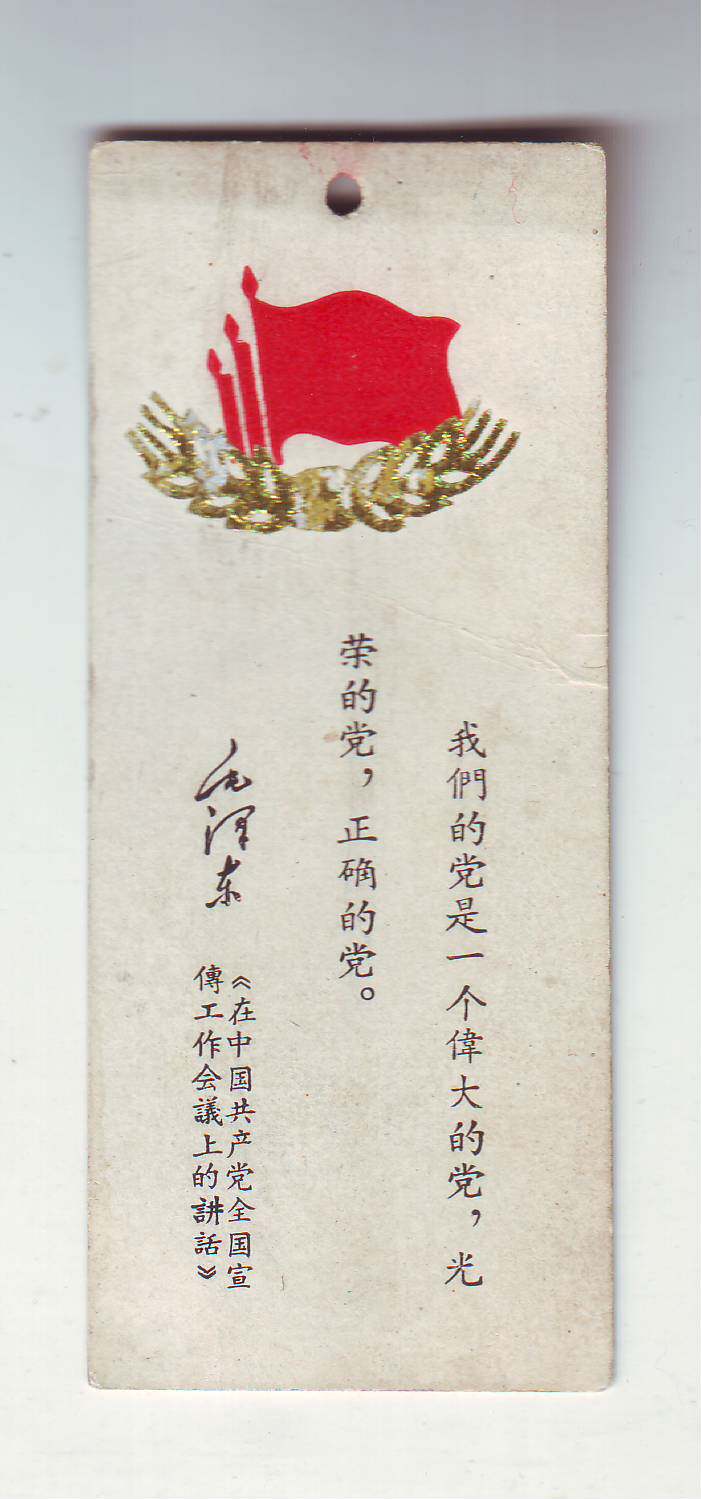 我們的党是一个偉大的党，光
荣的党，正确的党。
毛泽东
《在中国共产党全国宣
傳工作会議上的講話》